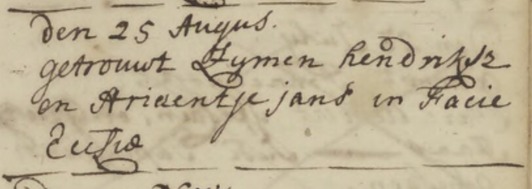 den 25 Augus.
getrouwt Hymen hendriksz
en Ariaentje jans in Facie
Eccsiæ